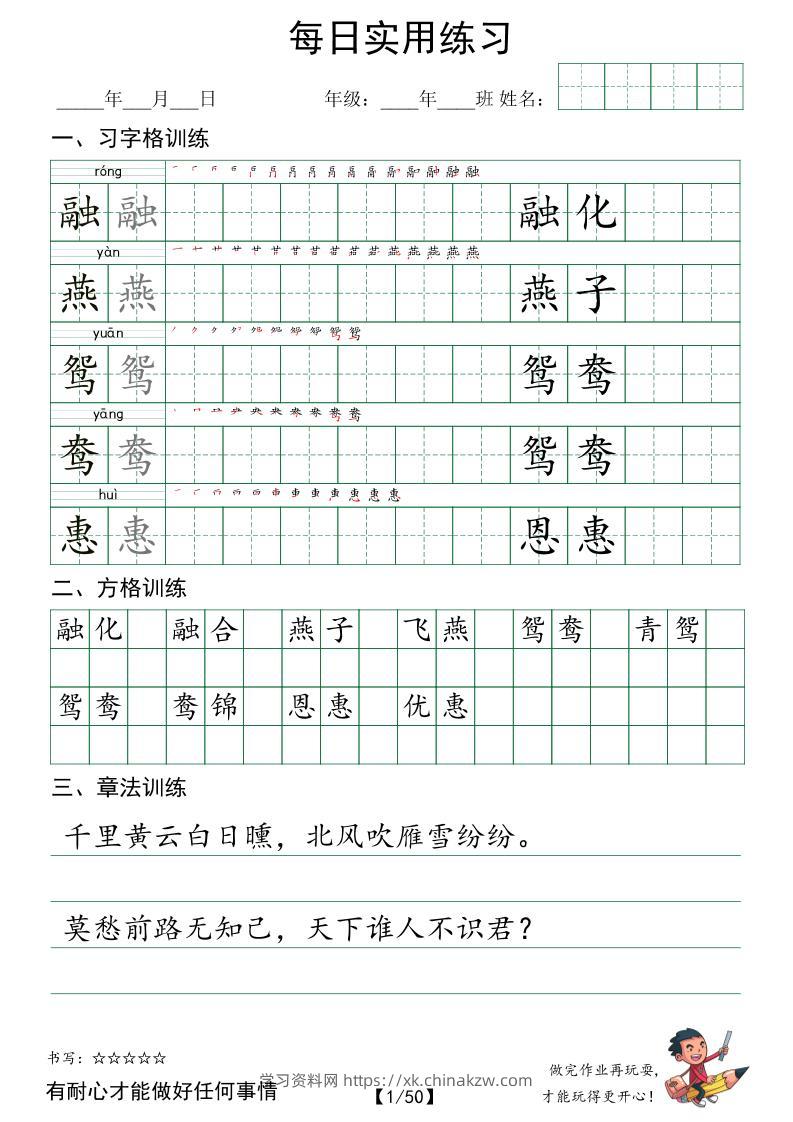 每日实用练习
_____年___月___日 年级：____年____班 姓名：
一、习字格训练
róng
融 融 融 化
yàn
燕 燕 燕 子
yuān
鸳 鸳 鸳 鸯
yāng
鸯 鸯 鸳 鸯
huì
惠 惠 恩 惠
二、方格训练
融化 融合 燕子 飞燕 鸳鸯 青鸳
鸳鸯 鸯锦 恩惠 优惠
三、章法训练
千里黄云白日曛，北风吹雁雪纷纷。
莫愁前路无知己，天下谁人不识君？
书写：☆☆☆☆☆
有耐心才能做好任何事情
学习资料网 https://xk.chinakzw.com
【1/50】
做完作业再玩耍，
才能玩得更开心！